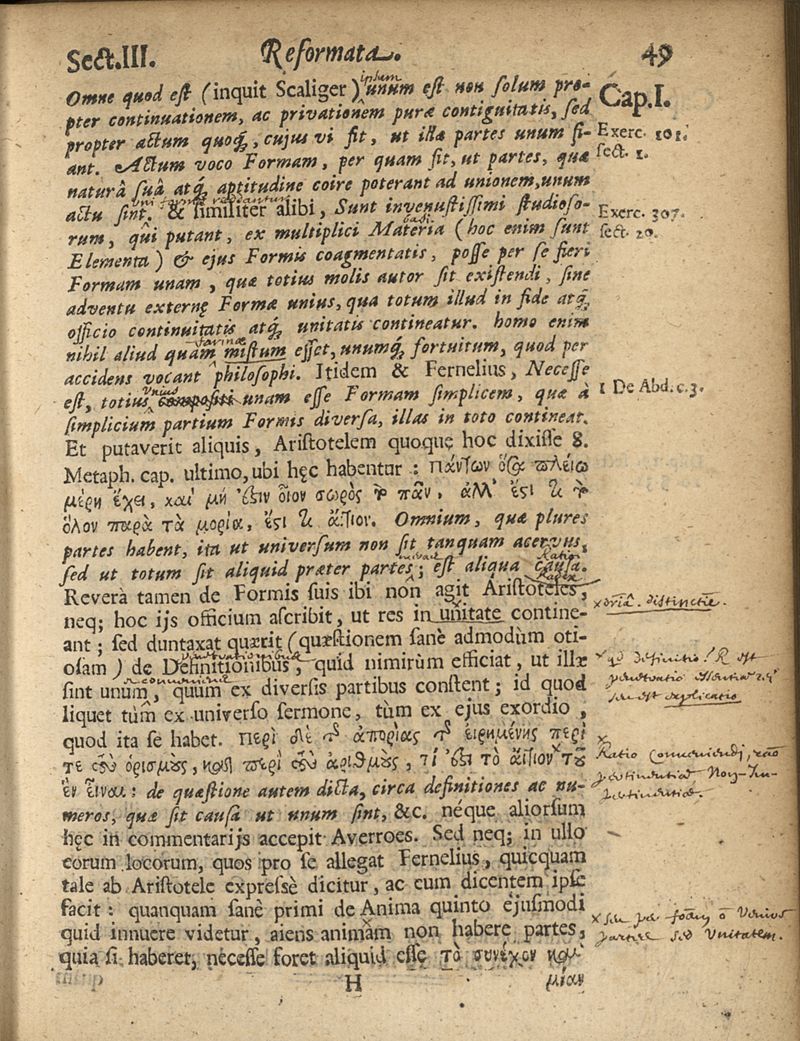 Sect.III. Reformata. 49
Omne quod est (inquit Scaliger) unum est non solum pro-
pter continuationem, ac privationem puræ contiguitatis, sed
propter actum quoq;, cujus vi fit, ut illæ partes unum fi-
ant. Actum voco Formam, per quam fit, ut partes, quæ
naturâ suâ atq; aptitudine coire poterant ad unionem, unum
actu sint. & similiter alibi, Sunt invenustissimi studioso-
rum, qûi putant, ex multiplici Materia (hoc enim sunt
Elementa) & ejus Formis coagmentatis, posse per se fieri
Formam unam, quæ totius molis autor sit existendi, sine
adventu externę Formæ unius, qua totum illud in fide atq;
officio continuitatis atq; unitatis contineatur. homo enim
nihil aliud quàm mistum esset, unumq; fortuitum, quod per
accidens vocant philosophi. Itidem & Fernelius, Necesse
est, totius compositi unam esse Formam simplicem, quæ à
simplicium partium Formis diversa, illas in toto contineat.
Et putaverit aliquis, Aristotelem quoque hoc dixisse 8.
Metaph. cap. ultimo, ubi hęc habentur: Πάντων ὅσα πλείω
μέρη ἔχει, καὶ μή ἐστιν οἷον σωρὸς τὸ πᾶν, ἀλλ' ἔστι τὶ τὸ
ὅλον παρὰ τὰ μορία, ἔστι τὶ αἴτιον. Omnium, quæ plures
partes habent, ita ut universum non sit tanquam acervus,
sed ut totum sit aliquid præter partes; est aliqua causa.
Reverà tamen de Formis suis ibi non agit Aristoteles,
neq; hoc ijs officium ascribit, ut res in unitate contine-
ant; sed duntaxat quærit (quæstionem sanè admodùm oti-
osam) de Definitionibus, quid nimirùm efficiat, ut illæ
sint unum, quum ex diversis partibus constent; id quod
liquet tùm ex universo sermone, tùm ex ejus exordio,
quod ita se habet. Περὶ δὲ τῆς ἀπορίας τῆς εἰρημένης περί
τε τοὺς ὁρισμοὺς, καὶ περὶ τοὺς ἀριθμοὺς, τί ἐστι τὸ αἴτιον τοῦ
ἓν εἶναι: de quæstione autem dicta, circa definitiones ac nu-
meros, quæ sit causa ut unum sint, &c. néque aliorsum
hęc in commentarijs accepit Averroes. Sed neq; in ullo
eorum locorum, quos pro se allegat Fernelius, quicquam
tale ab Aristotele expressè dicitur, ac eum dicentem ipse
facit: quanquam sanè primi de Anima quinto ejusmodi
quid innuere videtur, aiens animam non habere partes,
quia si haberet, necesse foret aliquid esse τὸ συνέχον καὶ
H μίαν
Cap.I.
Exerc. 101.
sect. 1.
Exerc. 307.
sect. 20.
1 De Abd. c. 3.
ipsum
unius
distinctiè.
definitio
explicatio
Ratio
Unitatem.